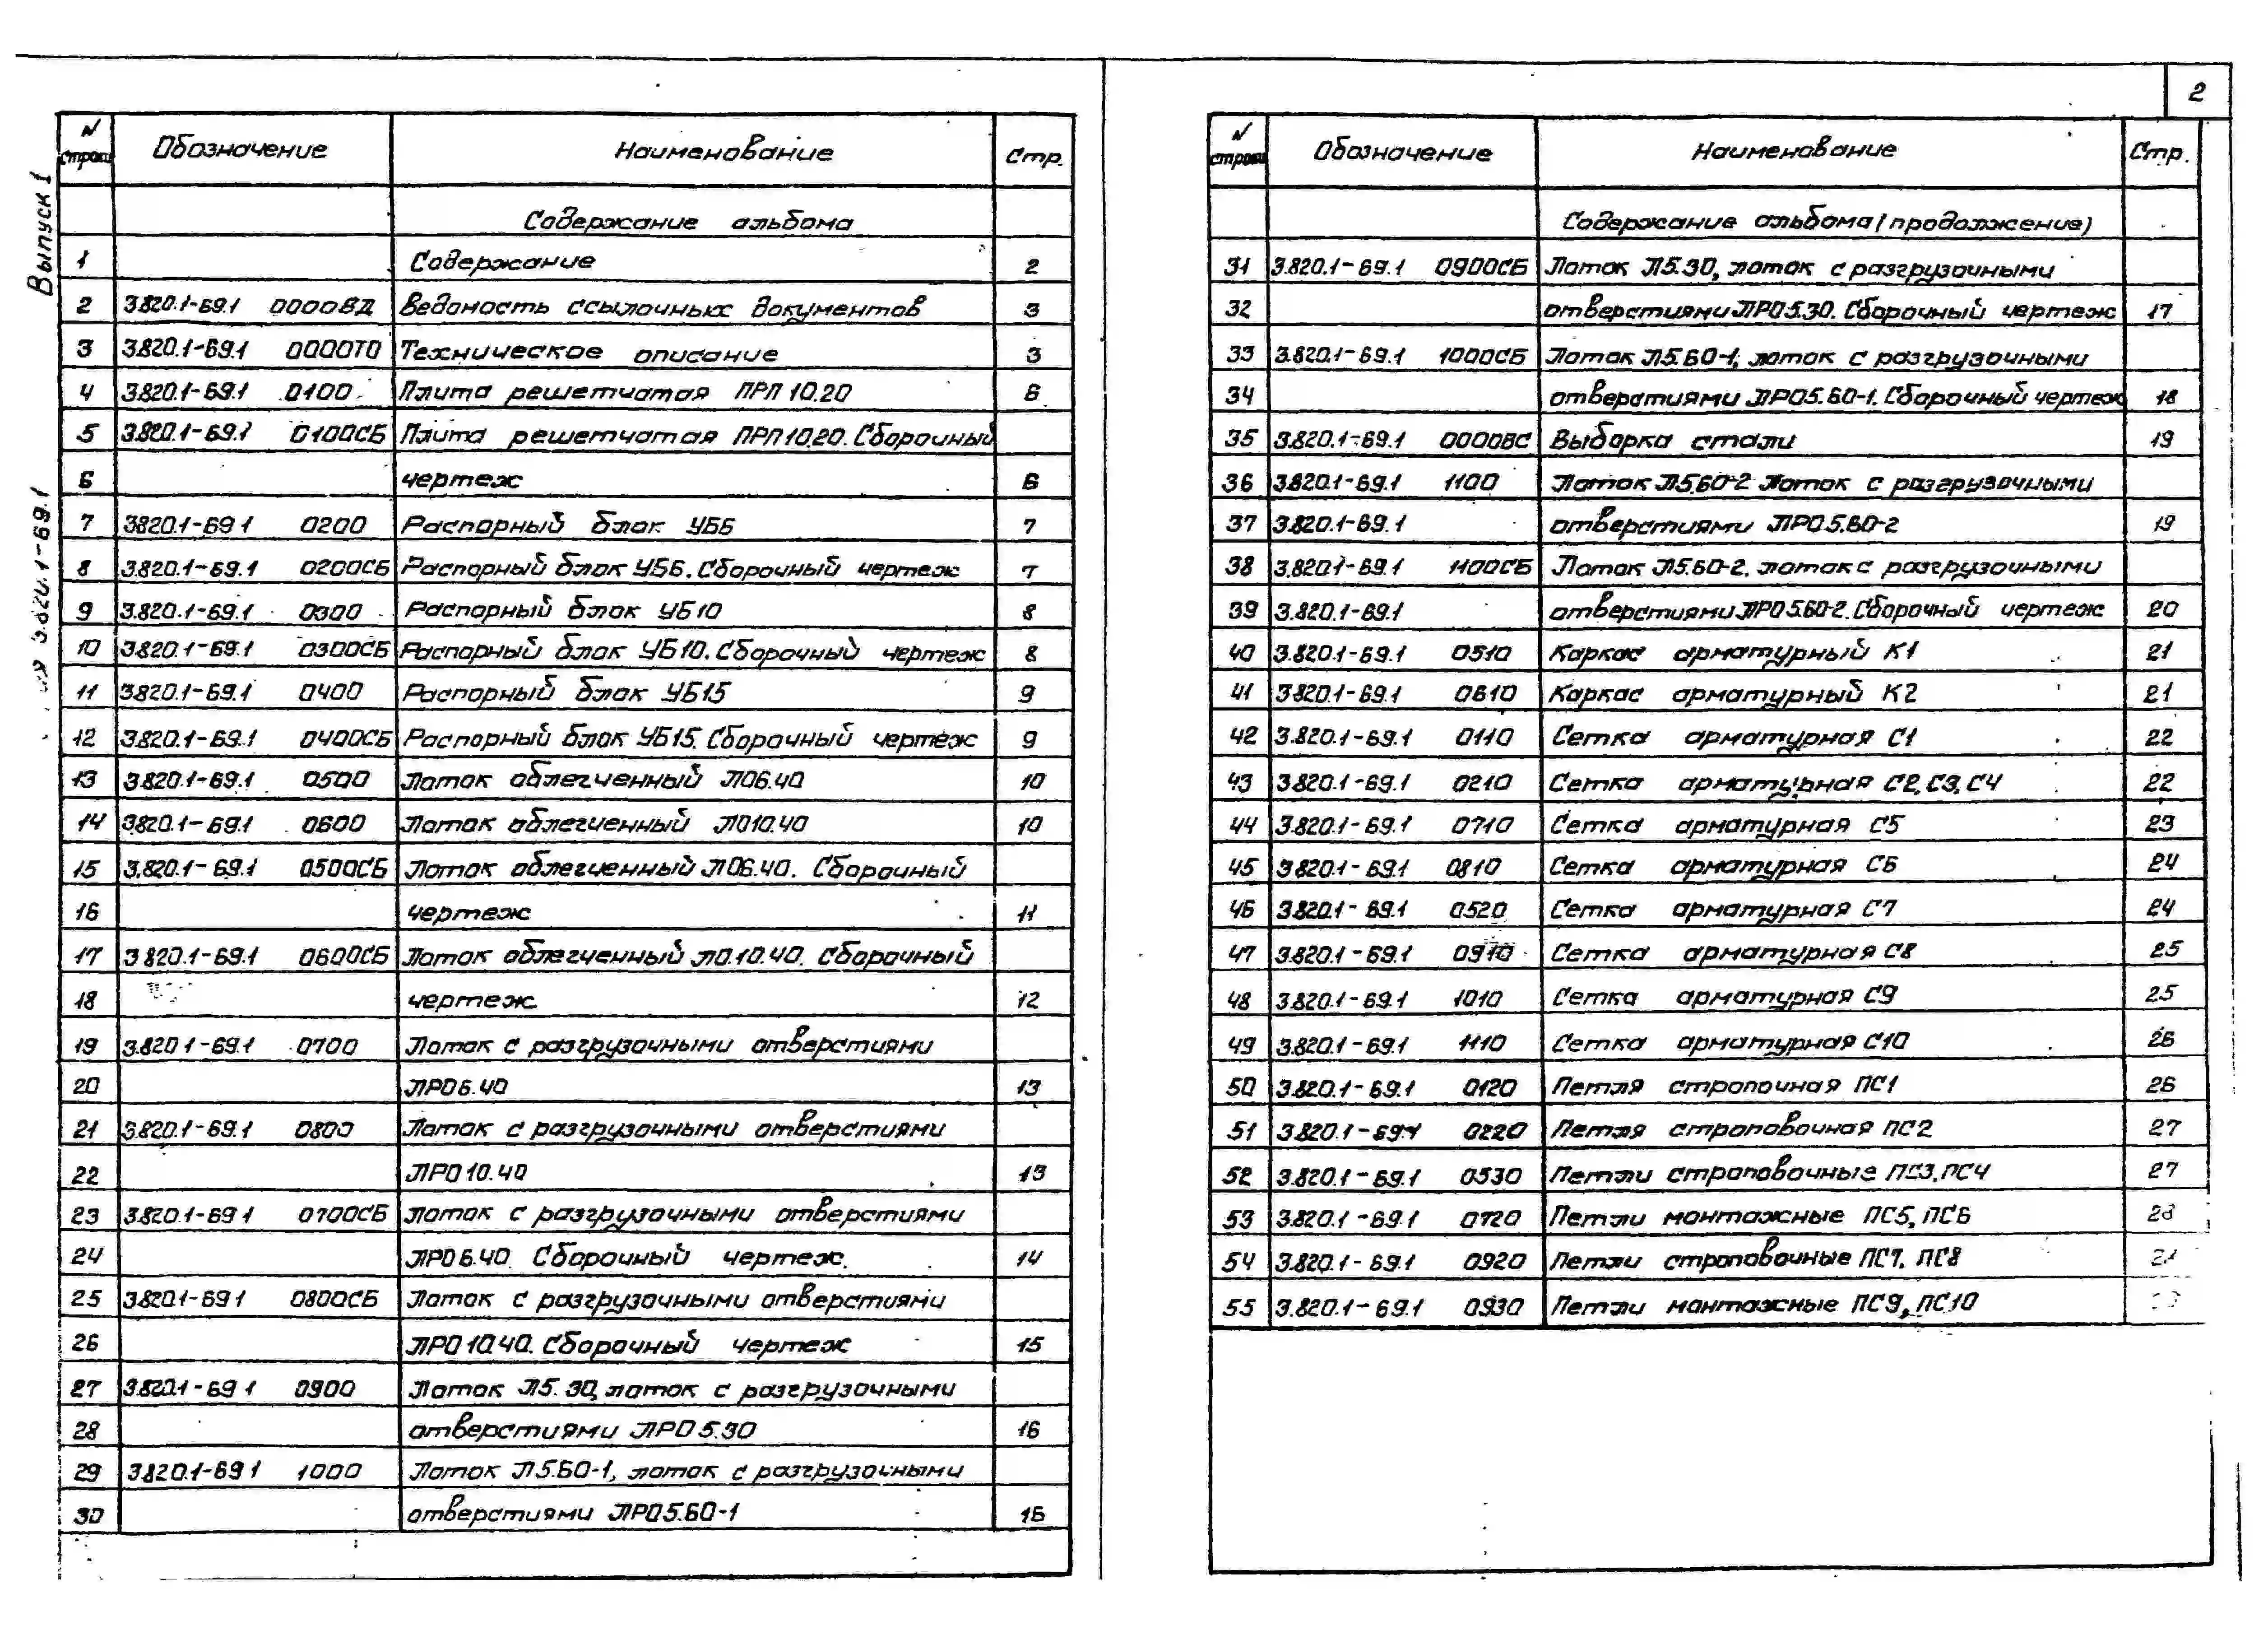 2
Выпуск 1
3.820.1-69.1
N строки Обозначение Наименование Стр.
Содержание альбома
1 Содержание 2
2 3.820.1-69.1 0000ВД Ведомость ссылочных документов 3
3 3.820.1-69.1 0000ТО Техническое описание 3
4 3.820.1-69.1 0100 Плита решетчатая ПРП 10.20 6
5 3.820.1-69.1 0100СБ Плита решетчатая ПРП 10.20. Сборочный
6 чертеж 6
7 3.820.1-69.1 0200 Распорный блок УБ6 7
8 3.820.1-69.1 0200СБ Распорный блок УБ6. Сборочный чертеж 7
9 3.820.1-69.1 0300 Распорный блок УБ10 8
10 3.820.1-69.1 0300СБ Распорный блок УБ10. Сборочный чертеж 8
11 3.820.1-69.1 0400 Распорный блок УБ15 9
12 3.820.1-69.1 0400СБ Распорный блок УБ15. Сборочный чертеж 9
13 3.820.1-69.1 0500 Лоток облегченный ЛО6.40 10
14 3.820.1-69.1 0600 Лоток облегченный ЛО10.40 10
15 3.820.1-69.1 0500СБ Лоток облегченный ЛО6.40. Сборочный
16 чертеж 11
17 3.820.1-69.1 0600СБ Лоток облегченный ЛО.10.40. Сборочный
18 чертеж 12
19 3.820.1-69.1 0700 Лоток с разгрузочными отверстиями
20 ЛРО6.40 13
21 3.820.1-69.1 0800 Лоток с разгрузочными отверстиями
22 ЛРО10.40 13
23 3.820.1-69.1 0700СБ Лоток с разгрузочными отверстиями
24 ЛРО6.40. Сборочный чертеж. 14
25 3.820.1-69.1 0800СБ Лоток с разгрузочными отверстиями
26 ЛРО10.40. Сборочный чертеж 15
27 3.820.1-69.1 0900 Лоток Л5.30, лоток с разгрузочными
28 отверстиями ЛРО5.30 16
29 3.820.1-69.1 1000 Лоток Л5.60-1, лоток с разгрузочными
30 отверстиями ЛРО5.60-1 16
N строки Обозначение Наименование Стр.
Содержание альбома (продолжение)
31 3.820.1-69.1 0900СБ Лоток Л5.30, лоток с разгрузочными
32 отверстиями ЛРО5.30. Сборочный чертеж 17
33 3.820.1-69.1 1000СБ Лоток Л5.60-1, лоток с разгрузочными
34 отверстиями ЛРО5.60-1. Сборочный чертеж 18
35 3.820.1-69.1 0000ВС Выборка стали 19
36 3.820.1-69.1 1100 Лоток Л5.60-2 Лоток с разгрузочными
37 3.820.1-69.1 отверстиями ЛРО5.60-2 19
38 3.820.1-69.1 1100СБ Лоток Л5.60-2, лоток с разгрузочными
39 3.820.1-69.1 отверстиями ЛРО5.60-2. Сборочный чертеж 20
40 3.820.1-69.1 0510 Каркас арматурный К1 21
41 3.820.1-69.1 0610 Каркас арматурный К2 21
42 3.820.1-69.1 0110 Сетка арматурная С1 22
43 3.820.1-69.1 0210 Сетка арматурная С2, С3, С4 22
44 3.820.1-69.1 0710 Сетка арматурная С5 23
45 3.820.1-69.1 0810 Сетка арматурная С6 24
46 3.820.1-69.1 0520 Сетка арматурная С7 24
47 3.820.1-69.1 0910 Сетка арматурная С8 25
48 3.820.1-69.1 1010 Сетка арматурная С9 25
49 3.820.1-69.1 1110 Сетка арматурная С10 26
50 3.820.1-69.1 0120 Петля стропочная ПС1 26
51 3.820.1-69.1 0220 Петля строповочная ПС2 27
52 3.820.1-69.1 0530 Петли строповочные ПС3, ПС4 27
53 3.820.1-69.1 0720 Петли монтажные ПС5, ПС6 28
54 3.820.1-69.1 0920 Петли строповочные ПС7, ПС8
55 3.820.1-69.1 0930 Петли монтажные ПС9, ПС10